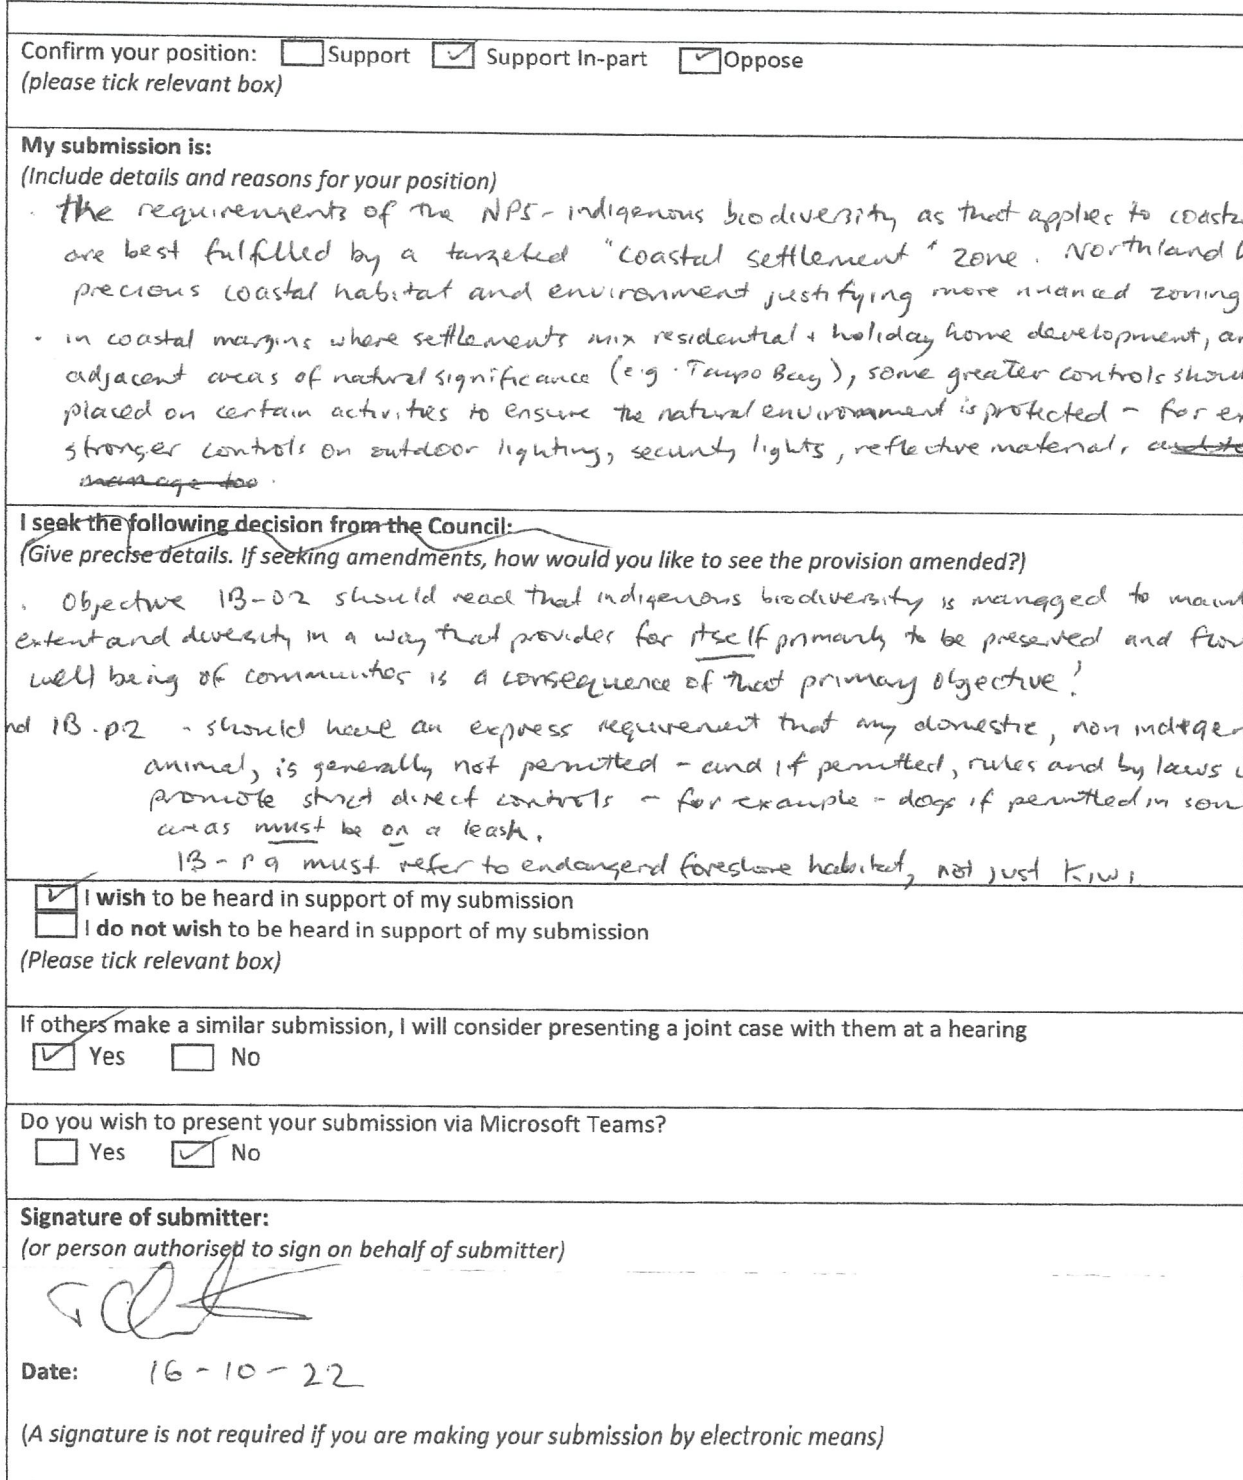 Confirm your position: Support Support In-part Oppose
(please tick relevant box)
My submission is:
(Include details and reasons for your position)
. the requirements of the NPS - indigenous biodiversity as that applies to
are best fulfilled by a targeted "coastal settlement" zone. Northland
precious coastal habitat and environment justifying more nuanced zoning
. in coastal margins where settlements mix residential + holiday home development,
adjacent areas of natural significance (e.g. Taupo Bay), some greater controls
placed on certain activities to ensure the natural environment is protected - for
stronger controls on outdoor lighting, security lights, reflective material,
manage too.
I seek the following decision from the Council:
(Give precise details. If seeking amendments, how would you like to see the provision amended?)
. Objective IB-O2 should read that indigenous biodiversity is managed to
extent and diversity in a way that provides for itself primarily to be preserved and
well being of communities is a consequence of that primary objective!
IB.p2 - should have an express requirement that any domestic, non
animal, is generally not permitted - and if permitted, rules and by laws
promote strict direct controls - for example - dogs if permitted in
areas must be on a leash.
IB-P9 must refer to endangerd foreshore habitat, not just Kiwi
I wish to be heard in support of my submission
I do not wish to be heard in support of my submission
(Please tick relevant box)
If others make a similar submission, I will consider presenting a joint case with them at a hearing
Yes No
Do you wish to present your submission via Microsoft Teams?
Yes No
Signature of submitter:
(or person authorised to sign on behalf of submitter)
Date: 16-10-22
(A signature is not required if you are making your submission by electronic means)